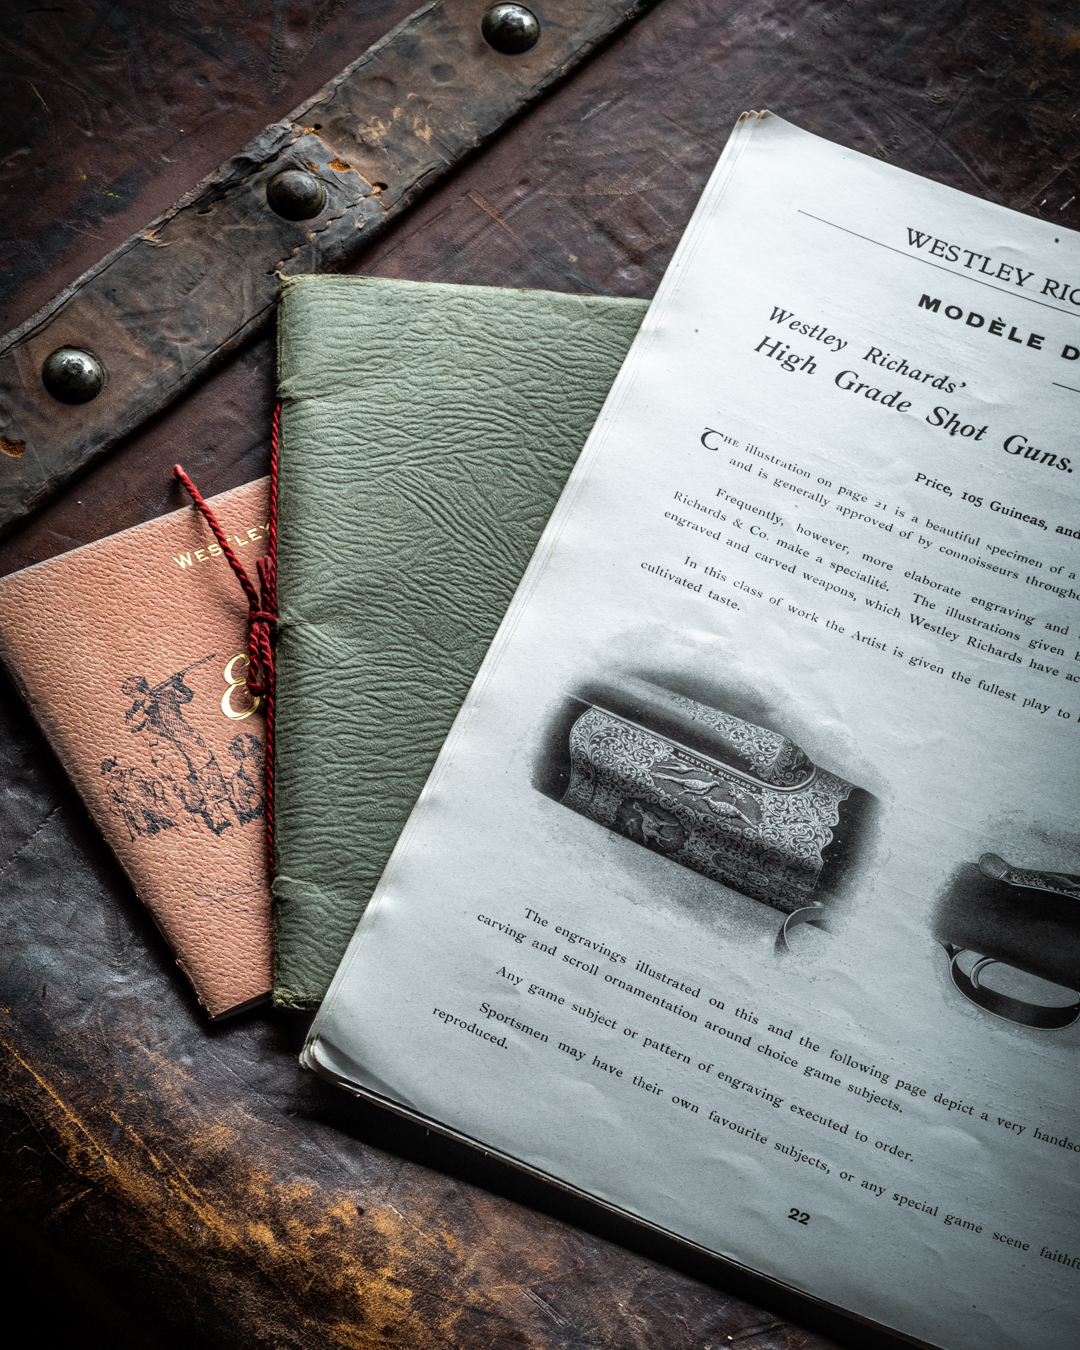 WESTLEY RIC
MODÈLE D
Westley Richards'
High Grade Shot Guns.
Price, 105 Guineas, and
THE illustration on page 21 is a beautiful specimen of a
and is generally approved of by connoisseurs througho
Frequently, however, more elaborate engraving and
Richards & Co. make a specialité. The illustrations given
engraved and carved weapons, which Westley Richards have ac
In this class of work the Artist is given the fullest play to
cultivated taste.
WESTLEY RICHARDS
The engravings illustrated on this and the following page depict a very handso
carving and scroll ornamentation around choice game subjects.
Any game subject or pattern of engraving executed to order.
Sportsmen may have their own favourite subjects, or any special game scene faithfu
reproduced.
22
WESTLEY
&